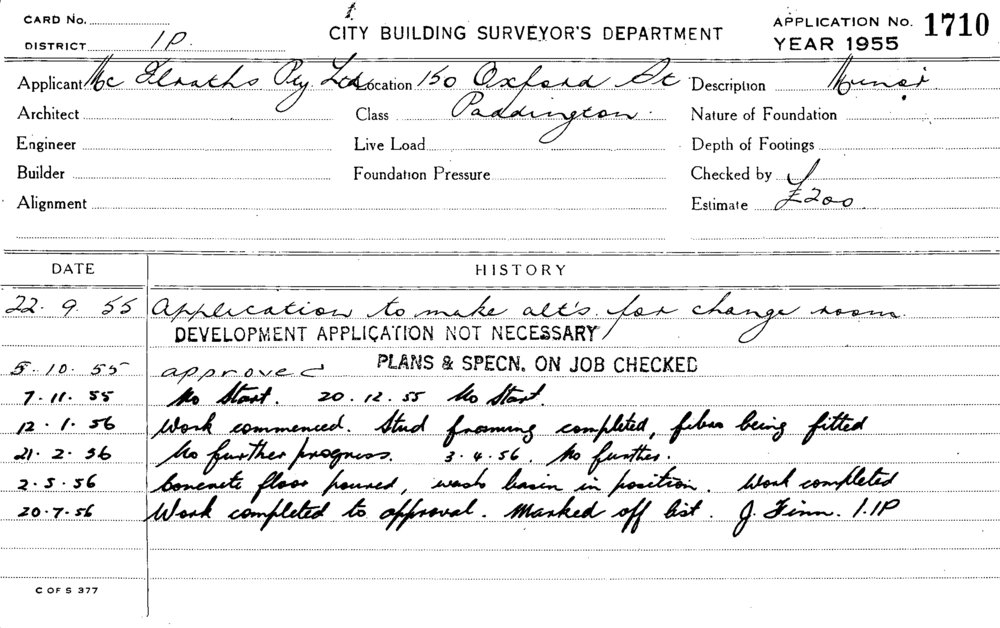 CARD No.
DISTRICT 1P.
CITY BUILDING SURVEYOR'S DEPARTMENT
APPLICATION No. 1710
YEAR 1955
Applicant Mc Ilraths Pty. Ltd. Location 150 Oxford St Description Minor
Architect Class Paddington. Nature of Foundation
Engineer Live Load Depth of Footings
Builder Foundation Pressure Checked by
Alignment Estimate £200
DATE HISTORY
22. 9. 55 Application to make alt's. for change room.
DEVELOPMENT APPLICATION NOT NECESSARY
5. 10. 55 approved PLANS & SPECN. ON JOB CHECKED
7. 11. 55 No Start. 20. 12. 55 No Start.
12. 1. 56 Work commenced. Stud framing completed, fibro being fitted
21. 2. 56 No further progress. 3. 4. 56. No further.
2. 5. 56 Concrete floor poured, wash basin in position. Work completed
20. 7. 56 Work completed to approval. Marked off list. J. Finn. 1.1P
C OF S 377